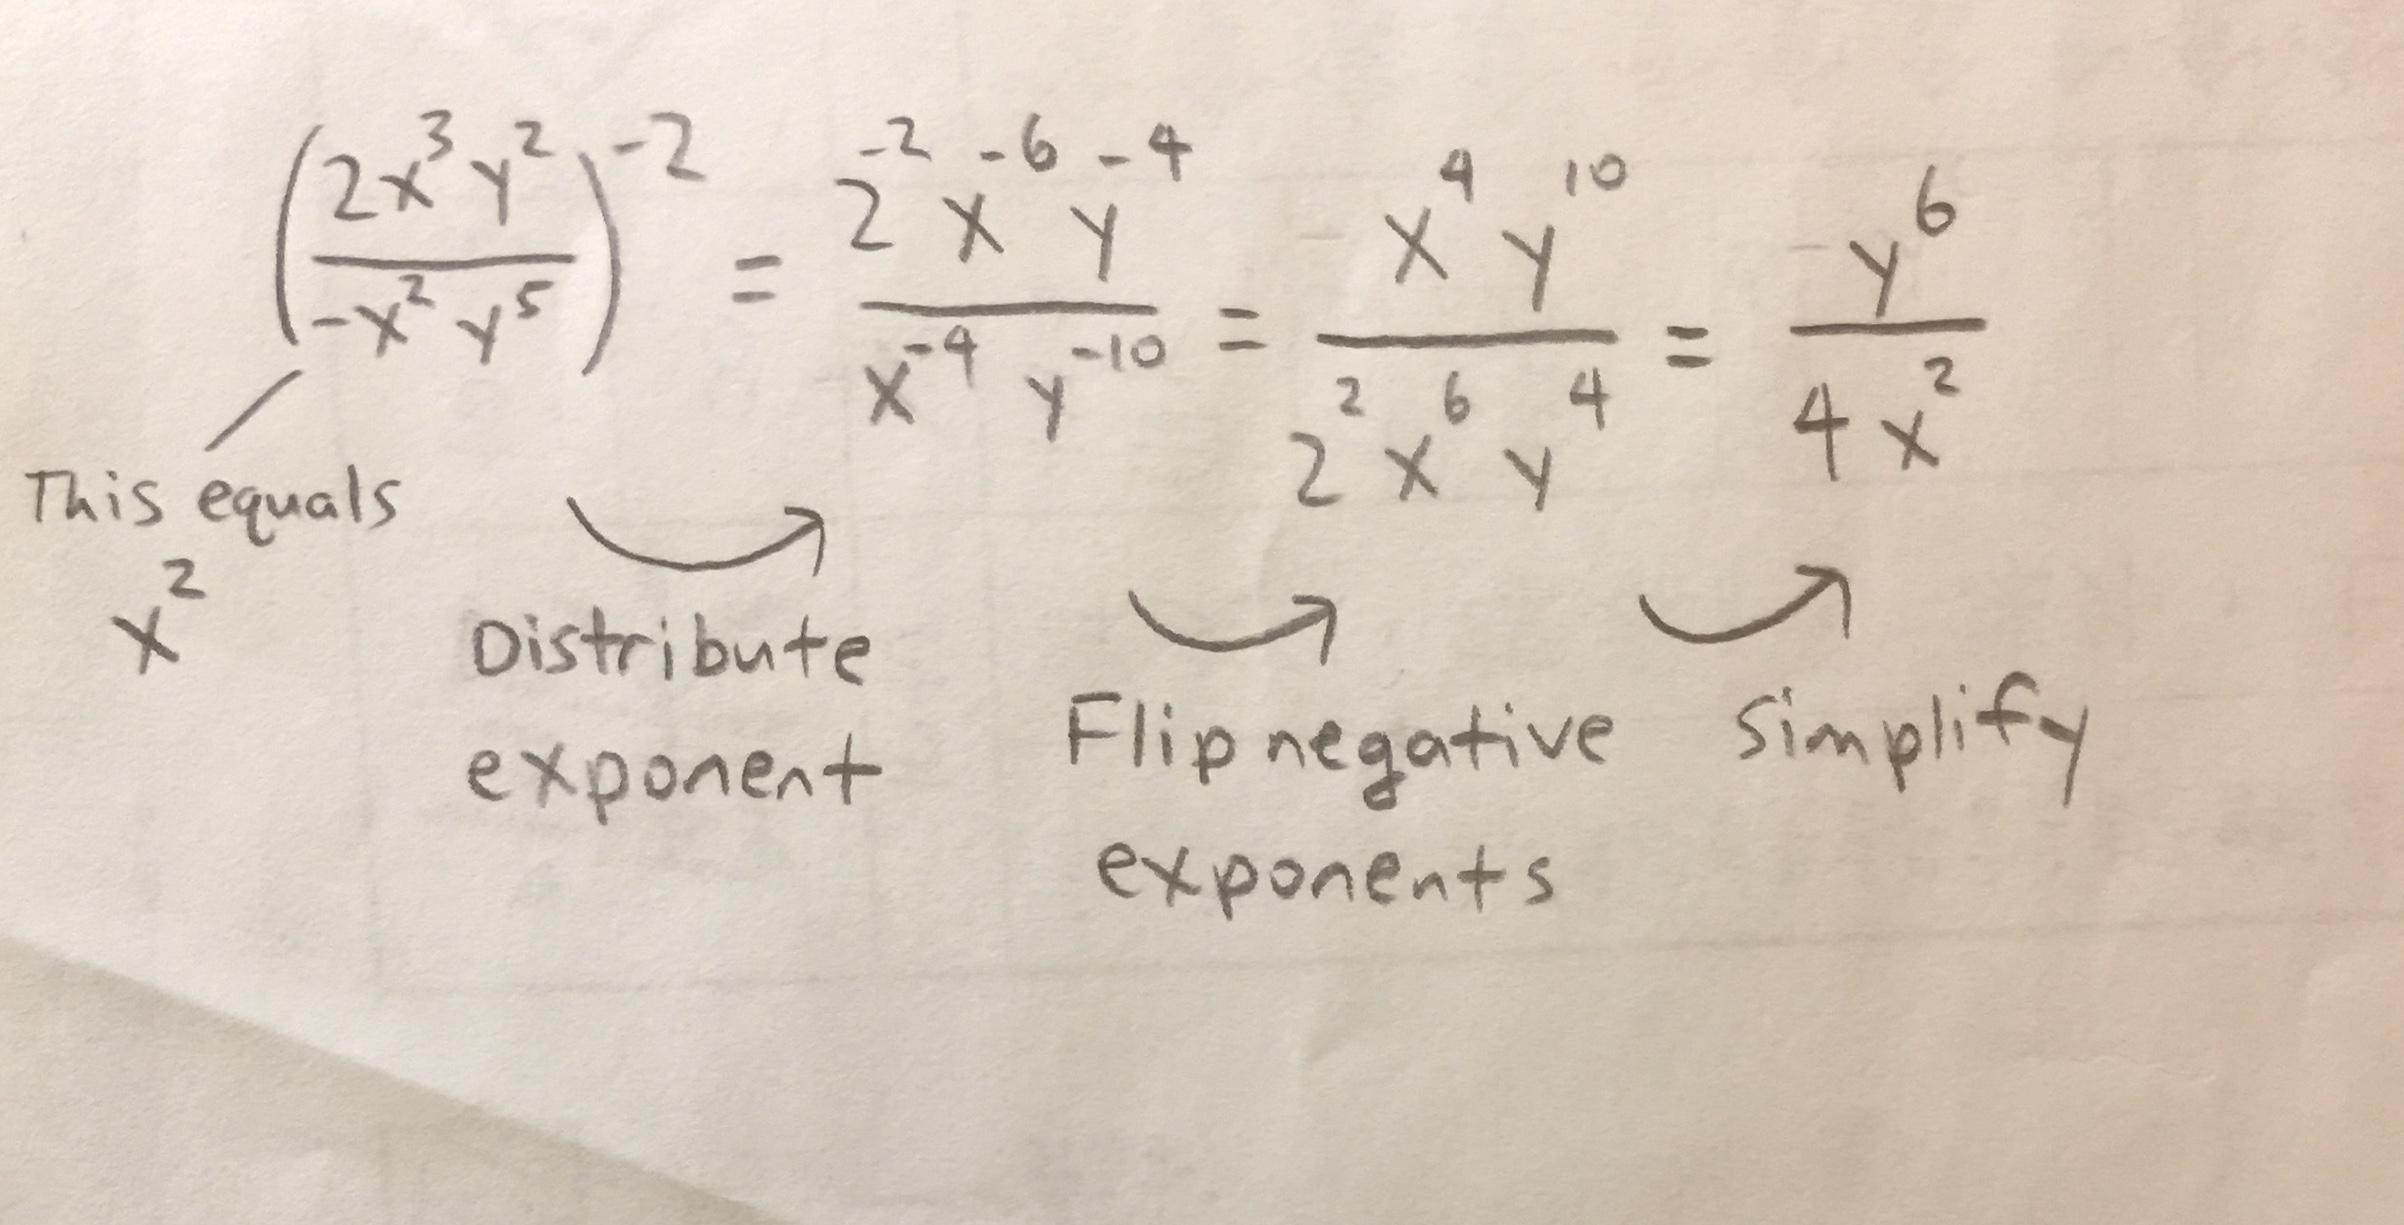 (2x³y² / -x²y⁵)⁻² = 2⁻²x⁻⁶y⁻⁴ / x⁻⁴y⁻¹⁰ = x⁴y¹⁰ / 2²x⁶y⁴ = y⁶ / 4x²
This equals
x²
Distribute
exponent
Flip negative
exponents
Simplify